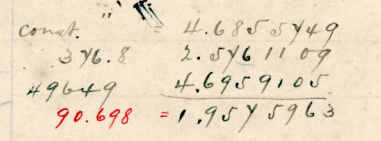 const. " 4.6855749
376.8 2.5761109
49649 4.6959105
90.698 = 1.9575963